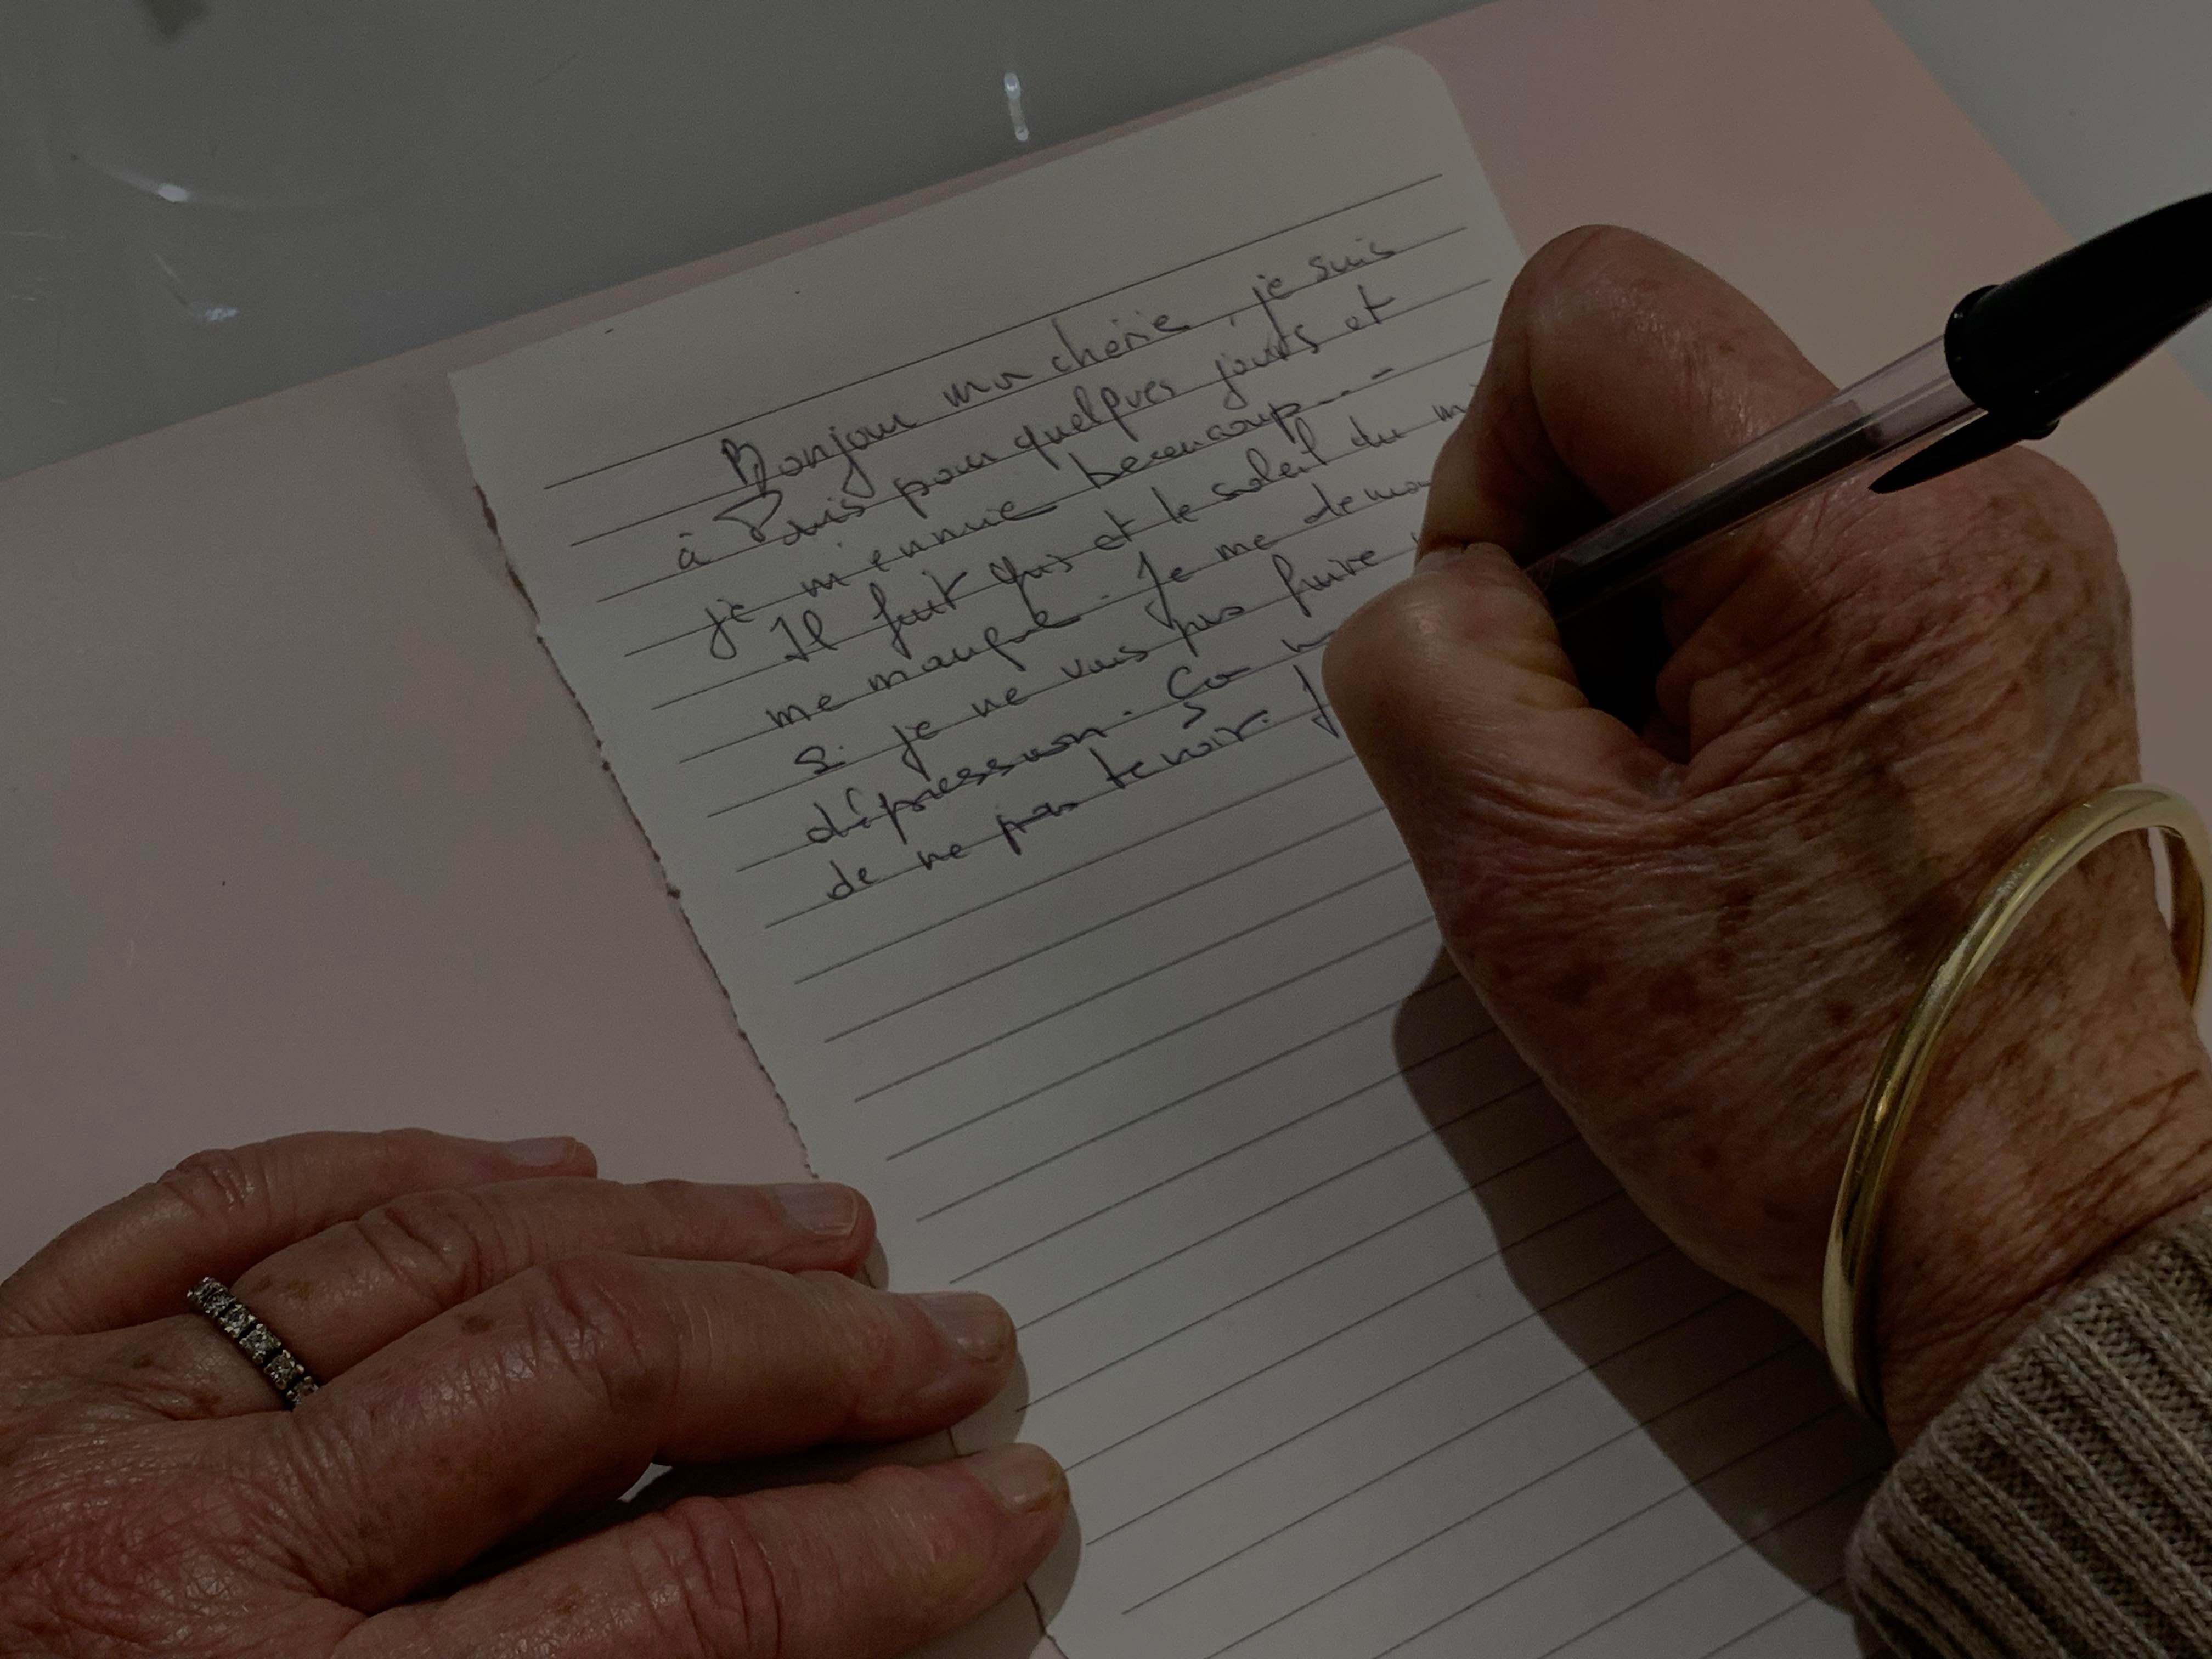 Bonjour ma chérie, je suis
à Paris pour quelques jours et
je m'ennuie beaucoup...
Il fait gris et le soleil du
me manque. Je me
si je ne vais pas faire
dépression. Ça
de ne pas tenir.